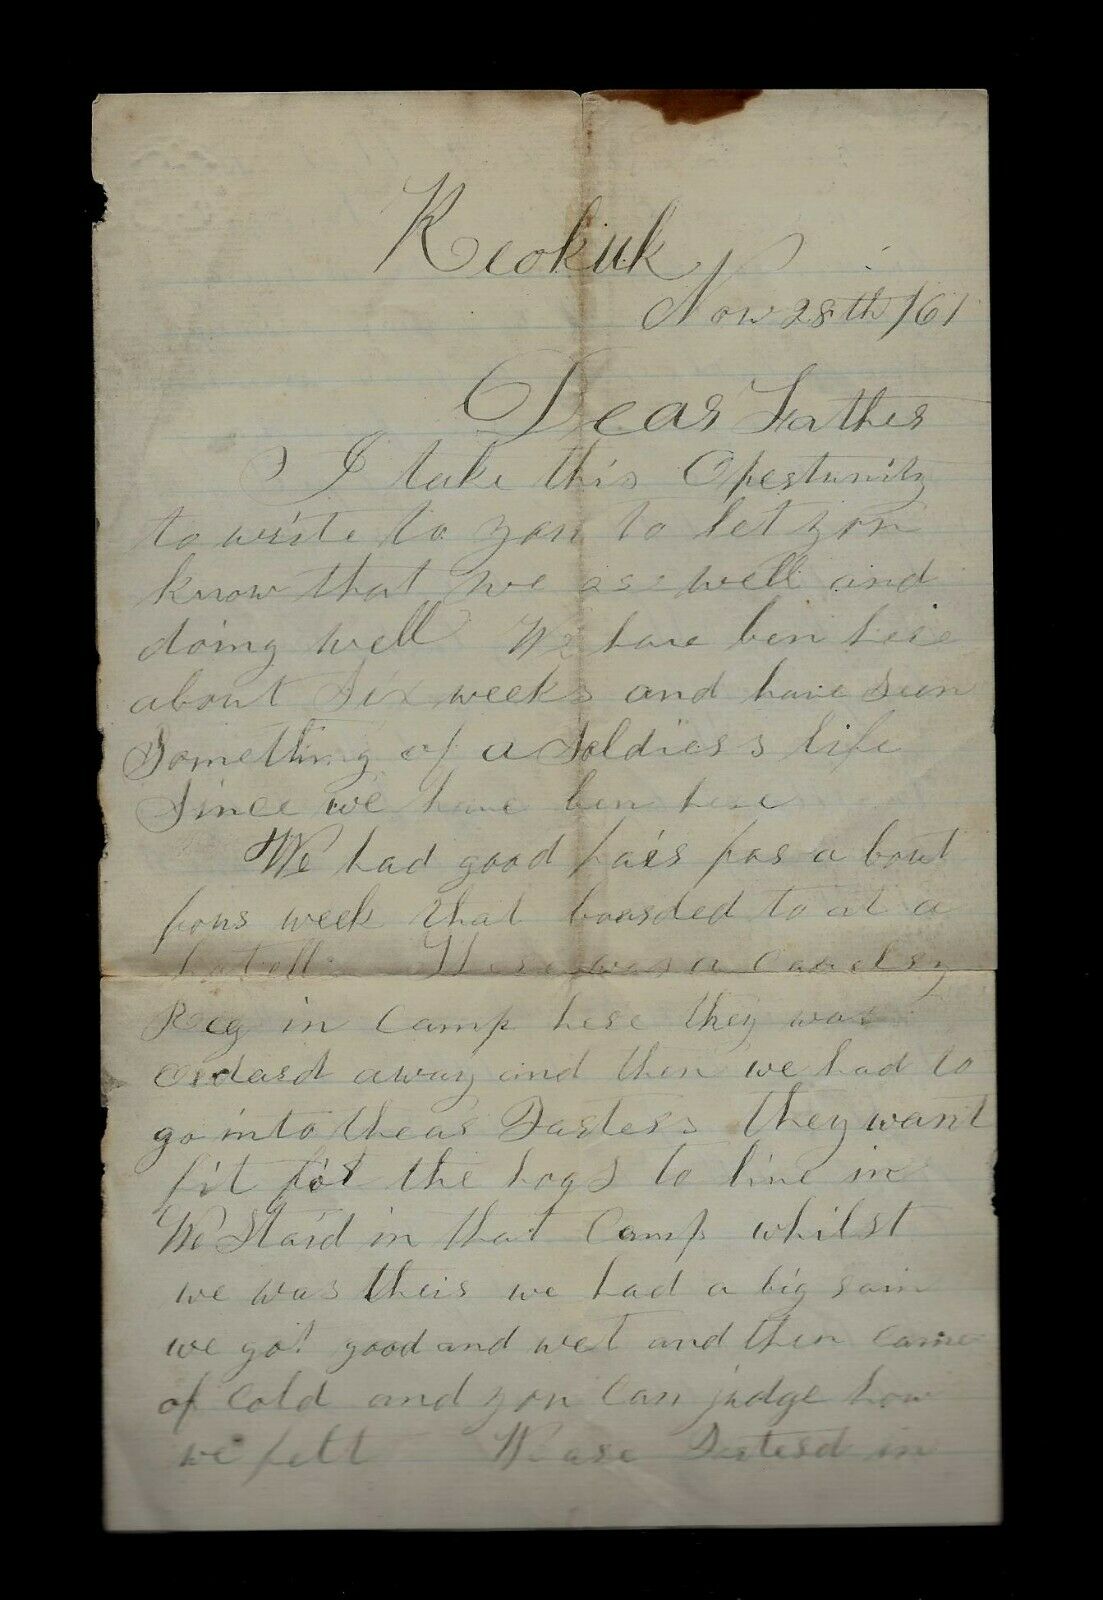 Keokuk
Nov 28th /61
Dear Father
I take this Opertunity
to write to you to let you
know that we are well and
doing well We have ben here
about Six weeks and have seen
Something of a Soldiers life
Since we have ben here
We had good fair for a bout
four week that boarded to at a
hotell There was a Cavelry
Reg in Camp here they was
Ordard away and then we had to
go into thear They want
fit for the hogs to live in
We Staid in that Camp whilst
we was their we had a big rain
we got good and wet and then came
of Cold and you Can judge how
we felt We are in